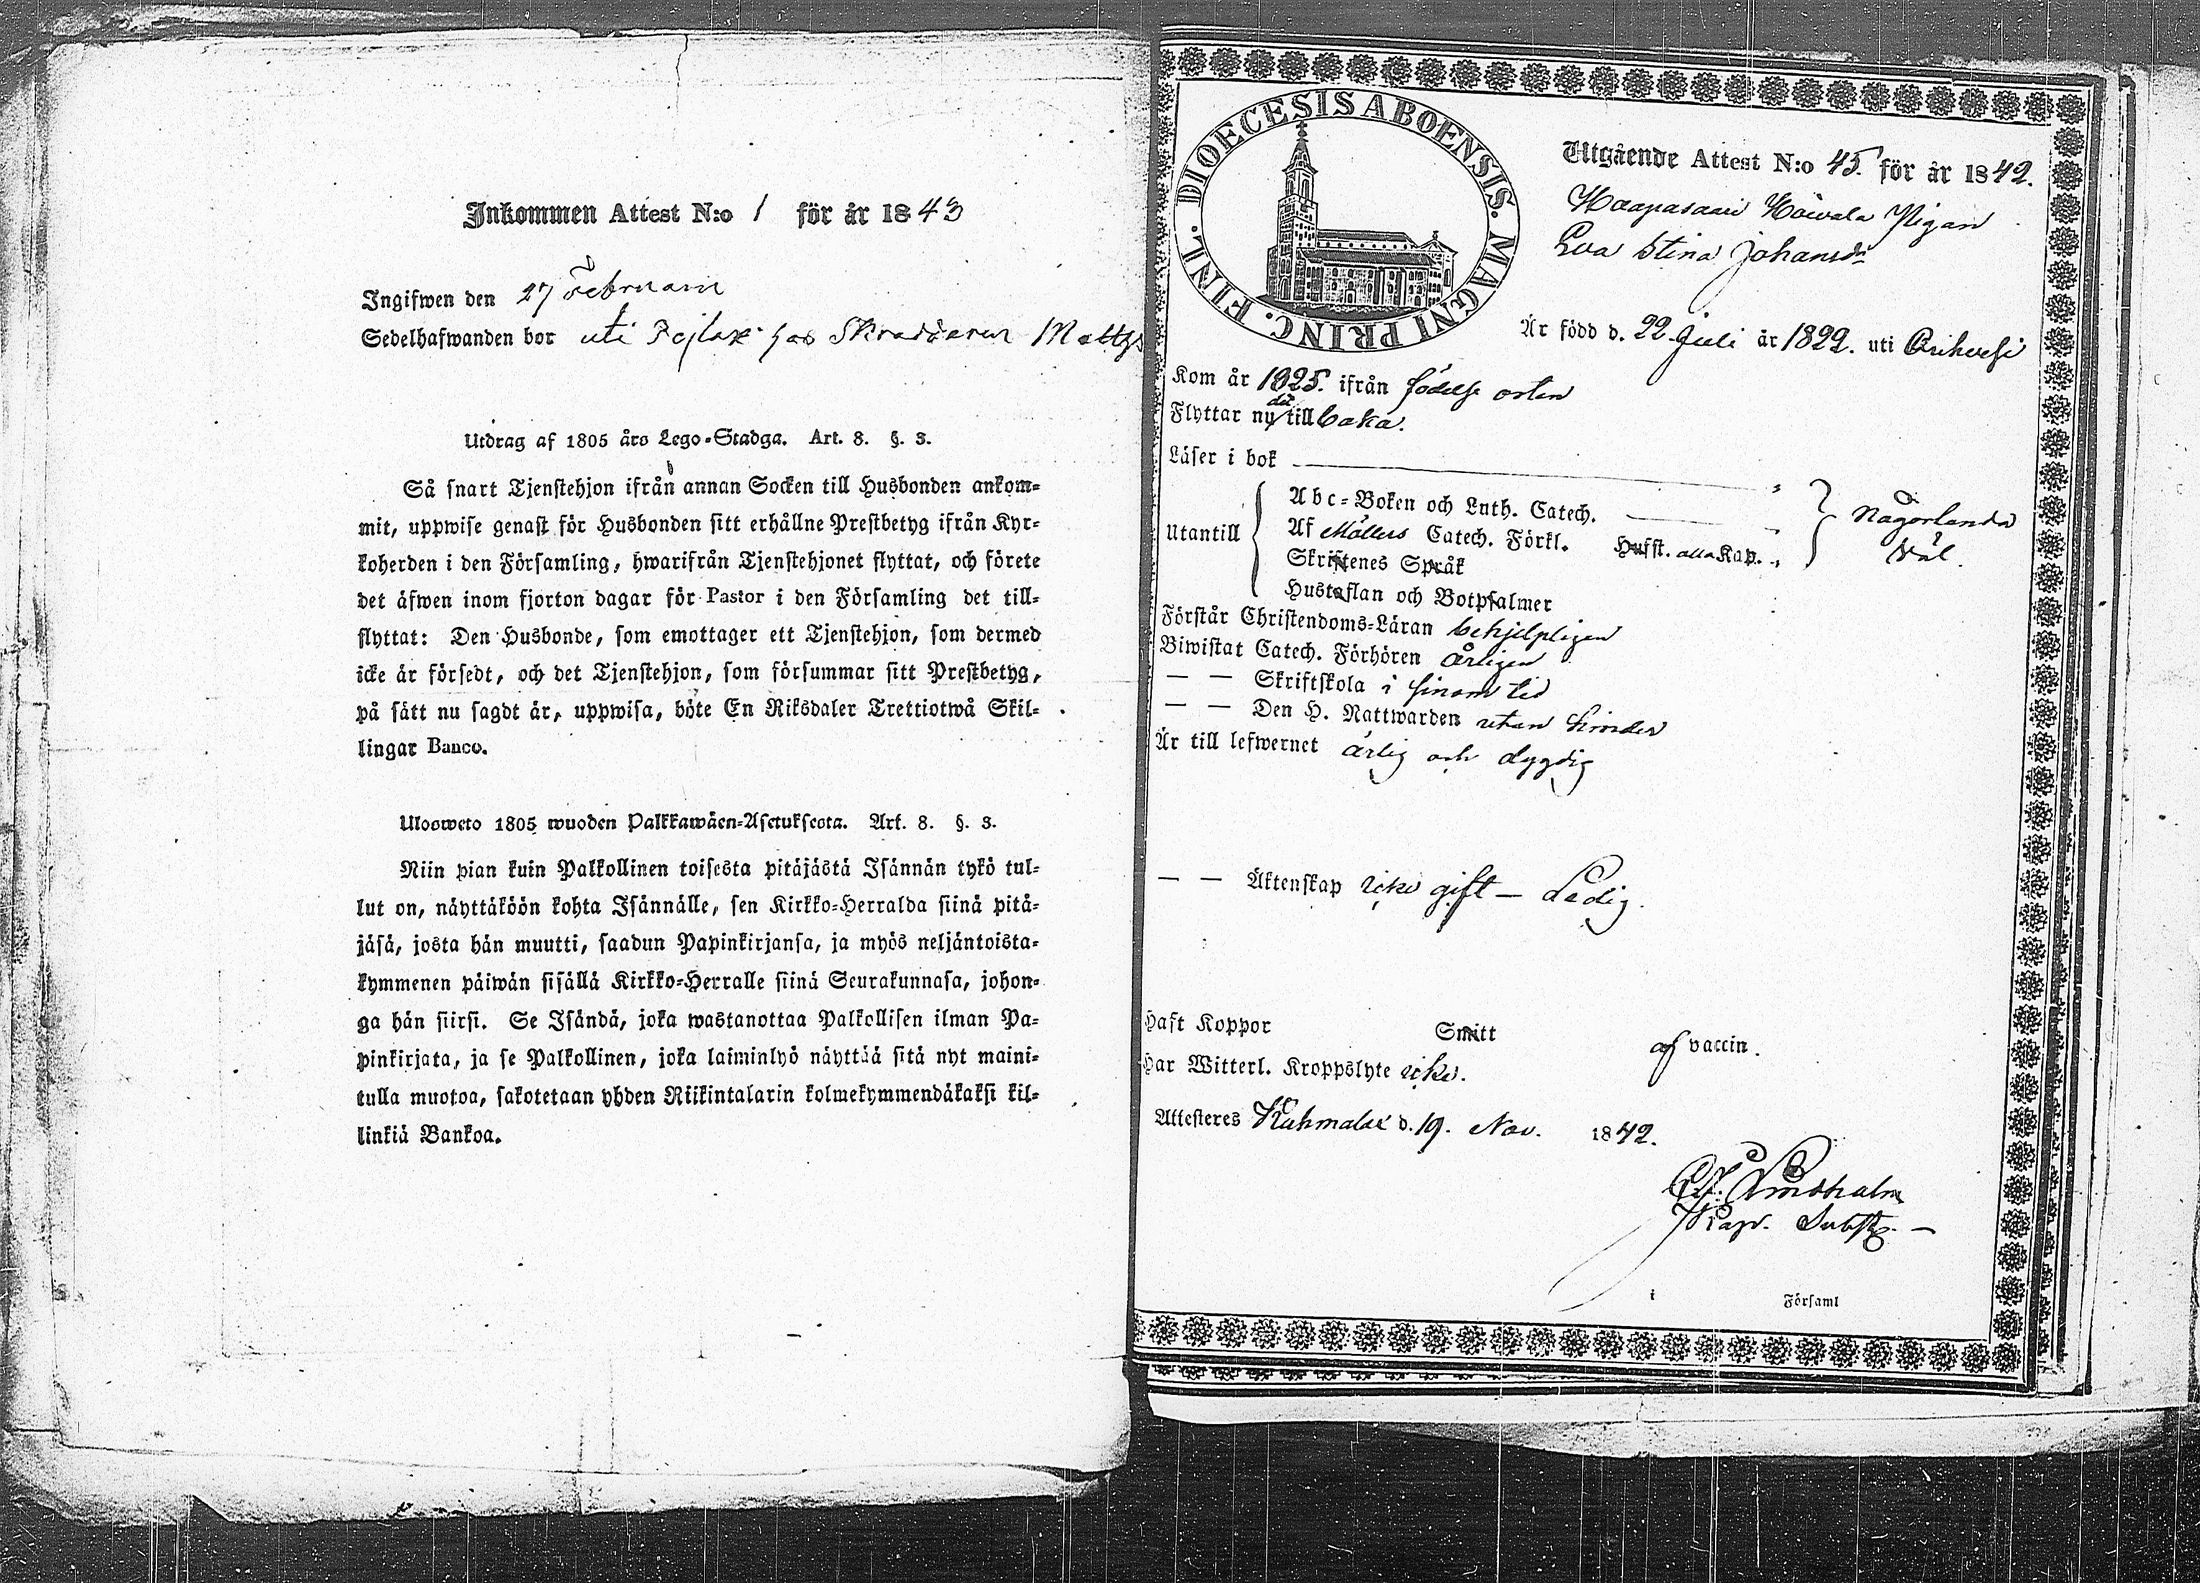 Inkommen Attest N:o 1 för år 1843
Ingifwen den 27 Februarii
Sedelhafwanden bor uti Pejlax hos Skraddaren Matths
Utdrag af 1805 års Lego-Stadga. Art. 8. §. 3.
Så snart Tjenstehjon ifrån annan Socken till Husbonden ankom-
mit, uppwise genast för Husbonden sitt erhållne Prestbetyg ifrån Kyr-
koherden i den Församling, hwarifrån Tjenstehjonet flyttat, och förete
det äfwen inom fjorton dagar för Pastor i den Församling det till-
flyttat: Den Husbonde, som emottager ett Tjenstehjon, som dermed
icke är försedt, och det Tjenstehjon, som försummar sitt Prestbetyg,
på sätt nu sagdt är, uppwisa, böte En Riksdaler Trettiotwå Skil-
lingar Banco.
Ulosweto 1805 wuoden Palkkawäen-Asetuksesta. Art. 8. §. 3.
Niin pian kuin Palkollinen toisesta pitäjästä Isännän tykö tul-
lut on, näyttäköön kohta Isännälle, sen Kirkko-Herralda siinä pitä-
jäsä, josta hän muutti, saadun Papinkirjansa, ja myös neljäntoista-
kymmenen päiwän sisällä Kirkko-Herralle siinä Seurakunnasa, johon-
ga hän siirsi. Se Isändä, joka wastanottaa Palkollisen ilman Pa-
pinkirjata, ja se Palkollinen, joka laiminlyö näyttää sitä nyt maini-
tulla muotoa, sakotetaan yhden Riikintalarin kolmekymmendäkaksi kil-
linkiä Bankoa.
DIOECESIS ABOENSIS. MAGNI PRINC. FINL.
Utgående Attest N:o 45. för år 1842.
Haapasaari Hoivala Pigan
Eva Stina Johansdr
Är född d. 22 Juli år 1822. uti Orihvesi
Kom år 1825. ifrån födelse orten
Flyttar nu dit tillbaka.
Läser i bok
Utantill
Abc-Boken och Luth. Catech.
Af Möllers Catech. Förkl. Hufst. alla Kap.
Skriftenes Språk
Hustaflan och Botpsalmer
Någorlunda
väl.
Förstår Christendoms-Läran behjelpligen
Biwistat Catech. Förhören årligen
— — Skriftskola i sinom tid
— — Den H. Nattwarden utan hinder
Är till lefwernet ärlig och dygdig
— — Äktenskap icke gift — Ledig.
Haft Koppor Smitt af vaccin.
Har Witterl. Kroppslyte icke.
Attesteres Kuhmalax d. 19. Nov. 1842.
Lindholm
Kapl. Subst. —
i Församl